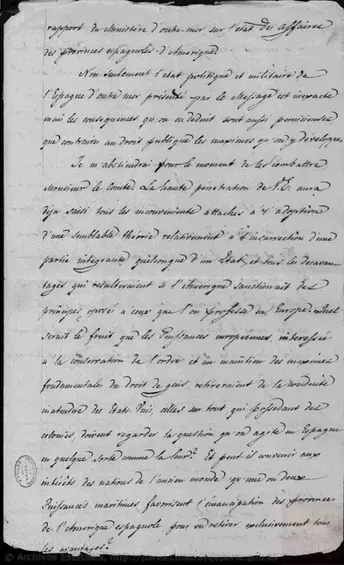 rapport du Ministère d'outre-mer sur l'etat des affaires
des provinces espagnoles d'Amerique
Non seulement l'etat politique et militaire de
l'Espagne d'outre mer présenté par le Message est inexacte
mais les consequences qu'on en déduit sont aussi pernicieuses
que contraires au droit publique les maximes qu'on y développe
Je m'abstiendrai pour le moment de les combattre
Monsieur le Comte. La haute penetration de V.E. aura
deja saisi tous les inconvenients attachés à l'adoption
d'une semblable theorie relativement à l'insurrection d'une
partie integrante quelconque d'un Etat, et tous les desavan-
tages qui resulteraient si l'Amerique sanctionait des
principes opposés à ceux que l'on professe en Europe. Quel
serait le fruit que les Puissances européennes, interessées
à la conservation de l'ordre et au maintien des maximes
fondamentales du droit de gens retireraient de la conduite
des Etats Unis, celles sur tout qui possedant des
colonies, doivent regarder la question qu'on agite en Espagne
en quelque sorte comme la leur? Et peut il convenir aux
intérêts des nations de l'ancien monde que une ou deux
Puissances maritimes favorisent l'émancipation des provinces
de l'Amerique espagnole pour en retirer exclusivement tous
les avantages?